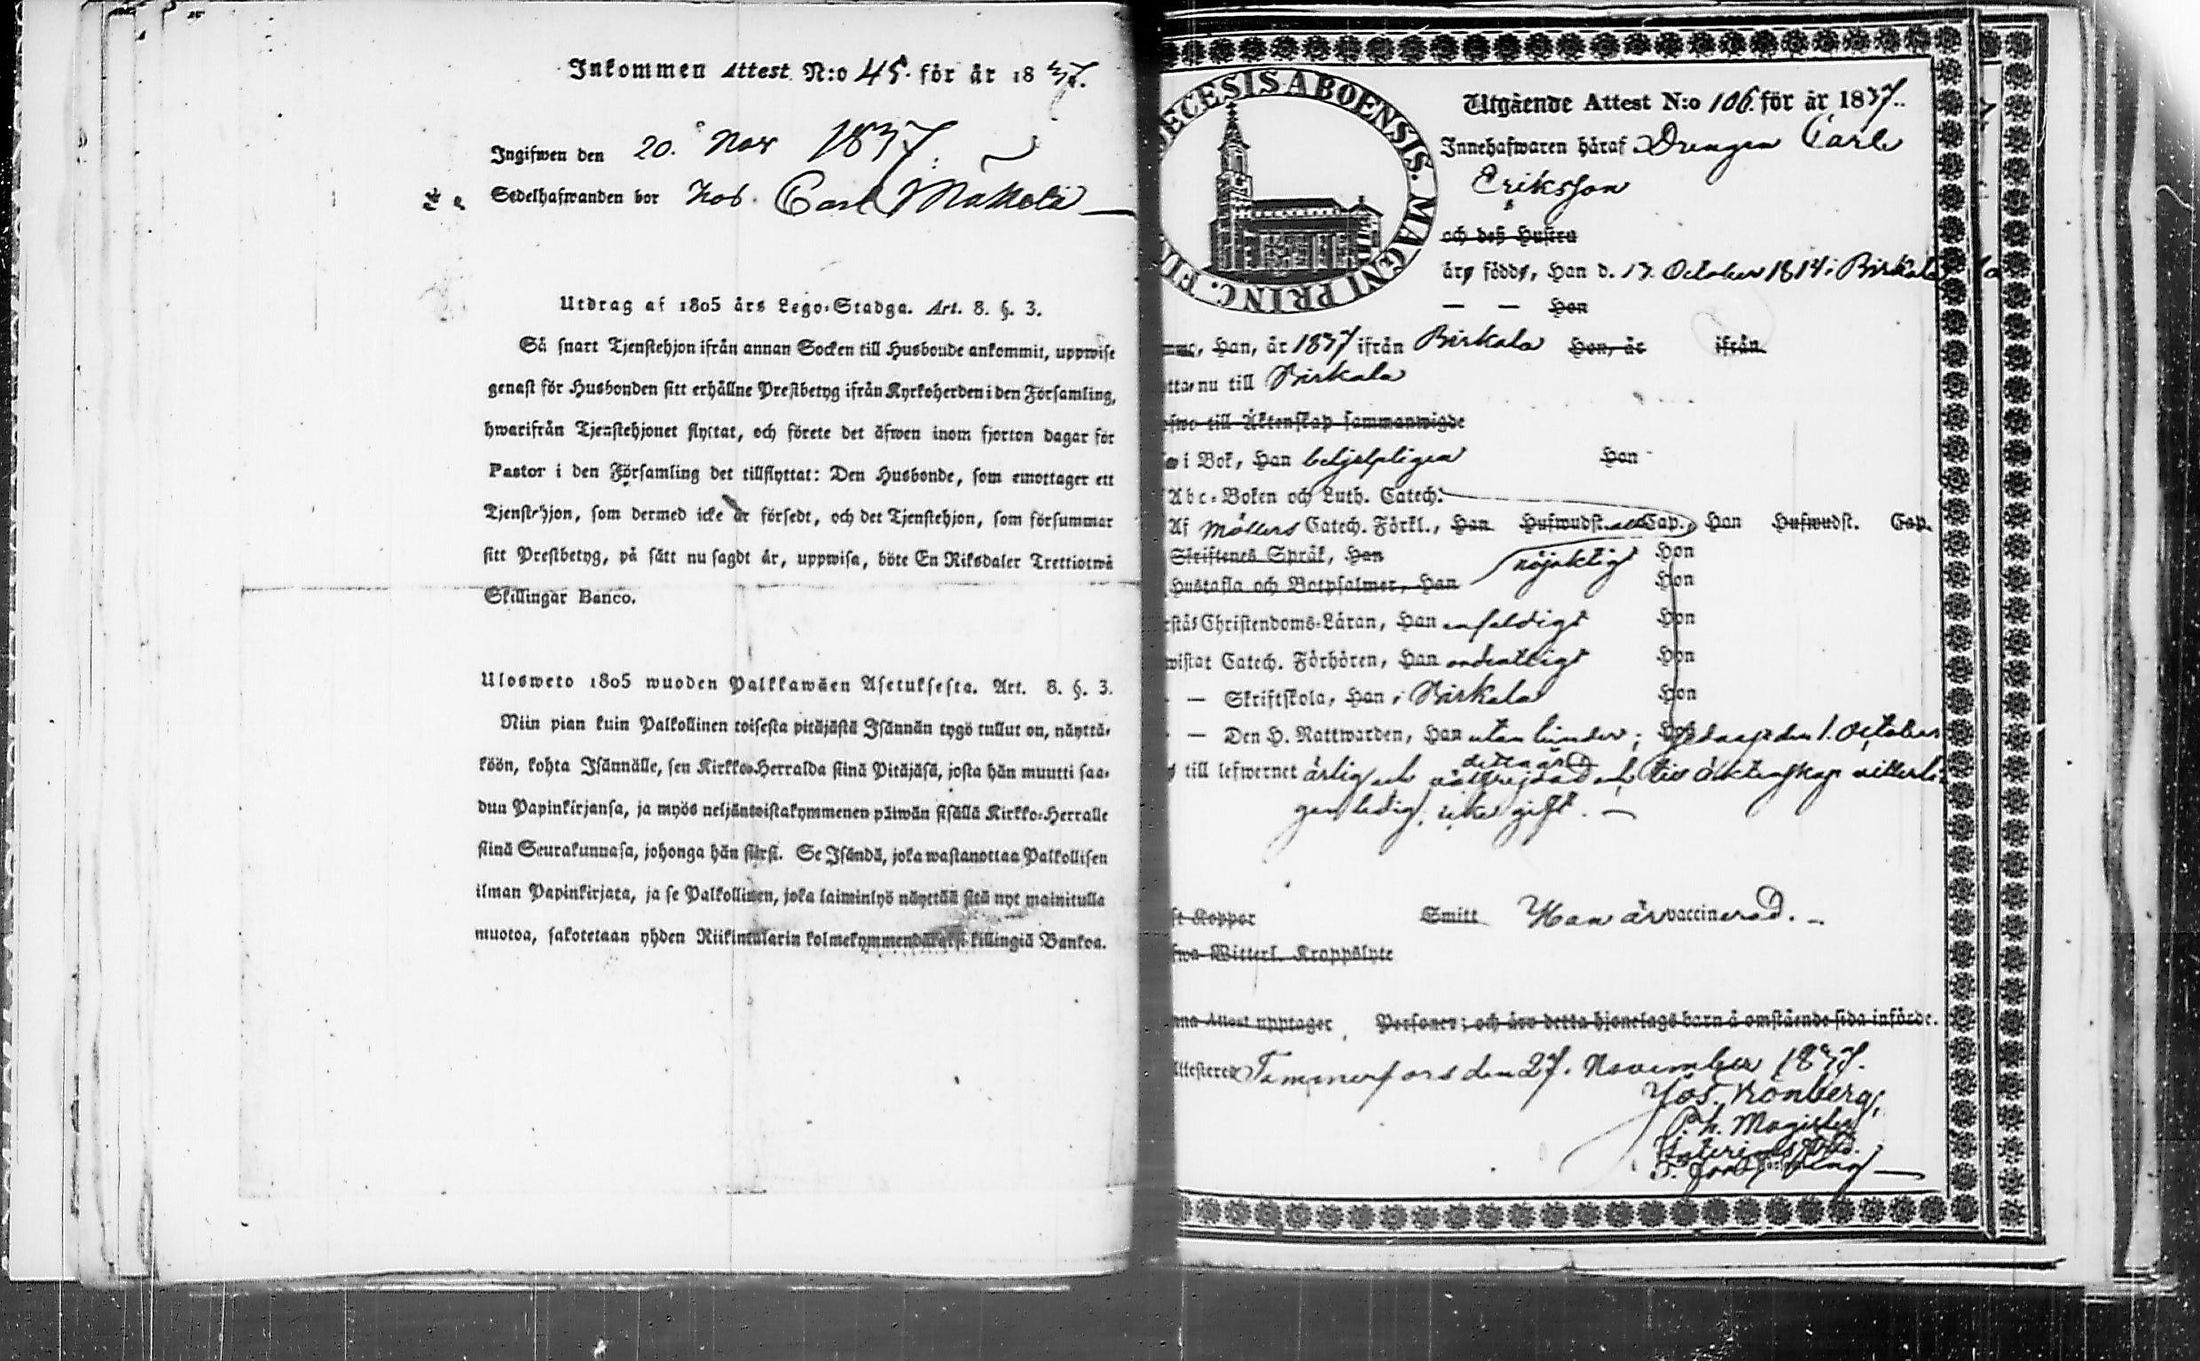 Inkommen Attest N:o 45. för år 1837.
Ingifwen den 20. Nov 1837.
Sedelhafwanden bor Carl Mattila
Utdrag af 1805 års Lego-Stadga. Art. 8. §. 3.
Så snart Tjenstehjon ifrån annan Socken till Husbonde ankommit, uppwise
genast för Husbonden sitt erhållne Prestbetyg ifrån Kyrkoherden i den Församling,
hwarifrån Tjenstehjonet flyttat, och förete det äfwen inom fjorton dagar för
Pastor i den Församling det tillflyttat: Den Husbonde, som emottager ett
Tjenstehjon, som dermed icke är försedt, och det Tjenstehjon, som försummar
sitt Prestbetyg, på sätt nu sagdt är, uppwisa, böte En Riksdaler Trettiotwå
Skillingar Banco.
Ulosweto 1805 wuoden Palkkawäen Asetuksesta. Art. 8. §. 3.
Niin pian kuin Palkollinen toisesta pitäjästä Isännän tygö tullut on, näyttä-
köön, kohta Isännälle, sen Kirkko-Herralda siinä Pitäjäsä, josta hän muutti saa-
dun Papinkirjansa, ja myös neljäntoistakymmenen päiwän sisällä Kirkko-Herralle
siinä Seurakunnasa, johonga hän siirsi. Se Isändä, joka wastanottaa Palkollisen
ilman Papinkirjata, ja se Palkollinen, joka laiminlyö näyttää sitä nyt mainitulla
muotoa, sakotetaan yhden Riikintalarin kolmekymmendäkaksi killingiä Bankoa.
DECESIS ABOENSIS. MAGNI PRINC. FIN
Utgående Attest N:o 106. för år 1837.
Innehafwaren häraf Drengen Carl
Eriksson
och deß Hustru
äro födde, Han d. 17. October 1814 i Birkala
— — Hon
Han, år 1837 ifrån Birkala Hon, år ifrån
nu till Birkala
till Äktenskap sammanwigde
i Bok, Han behjelpligen Hon
Abc-Boken och Luth. Catech.
Af Möllers Catech. Förkl., Han Hufwudst. Cap. Hon Hufwudst. Cap.
Skriftenes Språk, Han nöjaktigt Hon
Hustafla och Botpsalmer, Han Hon
Christendoms-Läran, Han enfaldigt Hon
Catech. Förhören, Han ordentligt Hon
— Skriftskola, Han i Birkala Hon
— Den H. Nattwarden, Han utan hinder; den 1. October
detta år
till lefwernet ärlig och och till äktenskap witterli-
gen ledig, icke gift. —
Koppor Smitt Han är vaccinerad. —
Witterl. Kroppslyte
Attest upptager Personer; och äro detta hjonelags barn å omstående sida införde.
Tammerfors den 27. November 1837.
Jos. Kronberg,
Ph. Magister